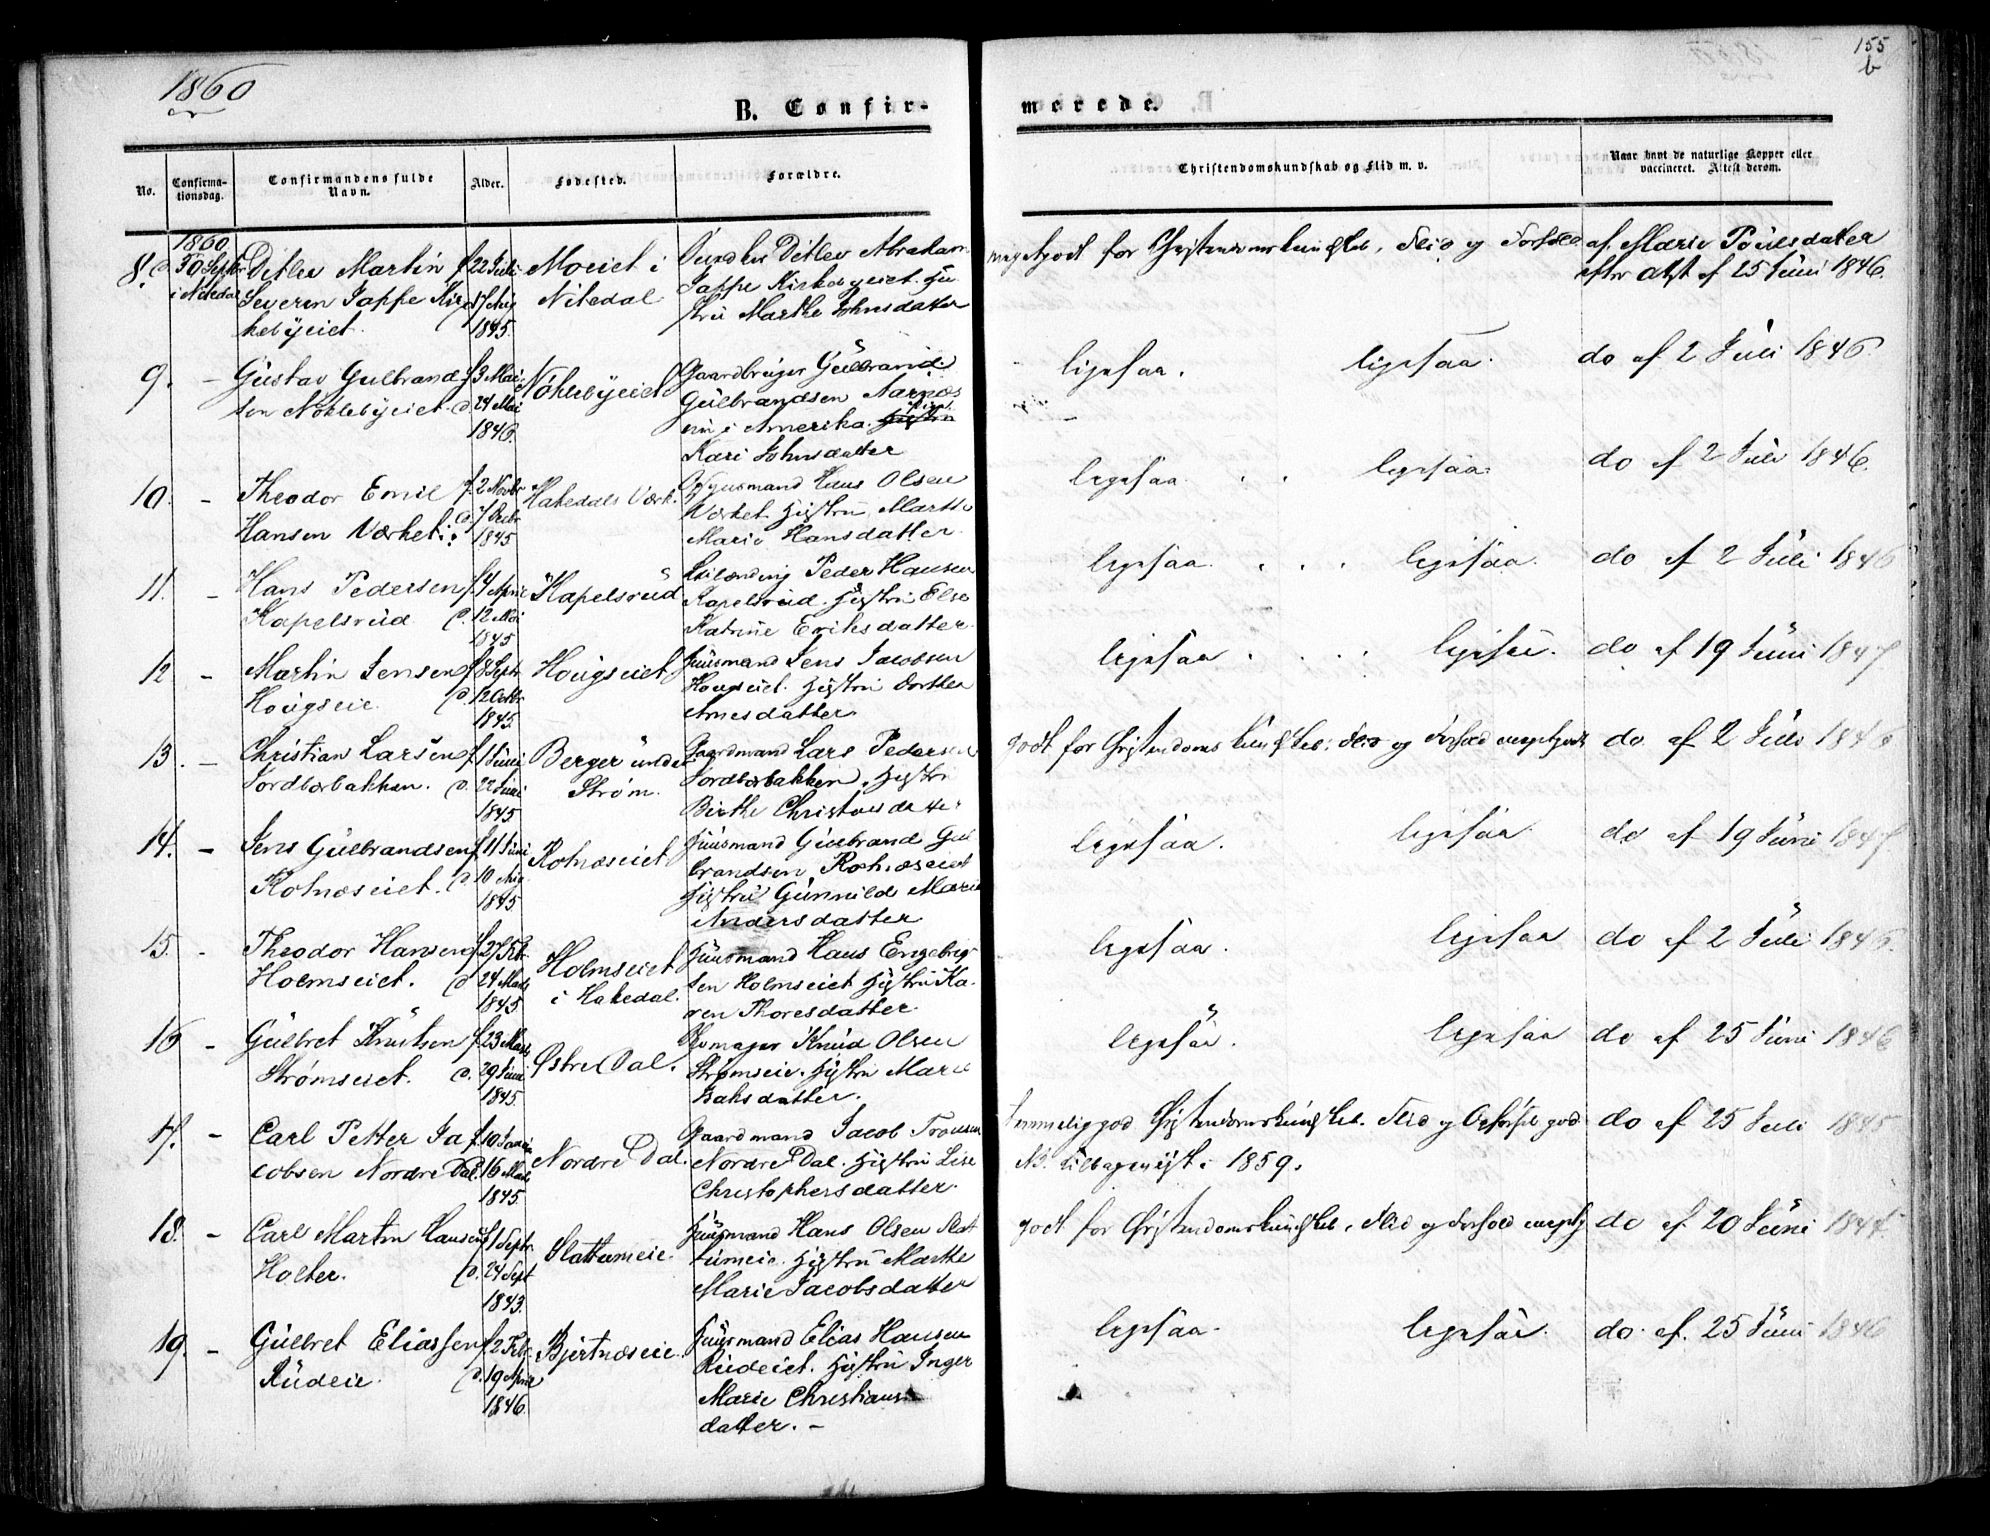 155
b
1860
B. Confir-
merede.
No.
Confirma-
tionsdag.
Confirmandens fulde
Navn.
Alder.
Fødested.
Forældre.
Christendomskundskab og Flid m. v.
Naar havt de naturlige Kopper eller
vaccineret. Attest derom.
8.
1860
30 Septbr
i Nitedal
Ditlev Martin
Severin Jappe Kir
kebyeiet.
f. 22 Juli
d. 17 Aug
1845.
Moeiet i
Nitedal
Ditlev Abraham
Jappe Kirkebyeiet. Hu
stru Marthe Johnsdatter
meget godt for Christendomskundskab, Flid og Forhold
af Marie Poulsdatter
efter Attst af 25 Juni 1846.
9. -
Gustav Gulbrand
sen Nöklebyeiet.
f. 3 Mai
d. 24 Mai
1846.
Nöklebyeiet
Gaardbruger Gulbrand
Gulbrandsen Aarnæs
nu i Amerika.
Kari Johnsdatter
ligesaa. ligesaa.
do af 2 Juli 1846.
10. -
Theodor Emil
Hansen Værket.
f. 2 Novbr
d. 7 Decbr
1845
Hakedals Værk.
Huusmand Hans Olsen
Værket Hustru Marthe
Marie Hansdatter
ligesaa ligesaa.
do af 2 Juli 1846.
11. -
Hans Pedersen
Kapelsrud
f. 4 April
d. 12 Mai
1845
Kapelsrud
Peder Hansen
Kapelsrud. Hustru Else
Katrine Eriksdatter
ligesaa. ligesaa.
do af 2 Juli 1846
12 -
Martin Jensen
Hougseie
f. 8 Septr
d. 12 Octbr
1845.
Hougseiet
Huusmand Jens Jacobsen
Hougseiet. Hustru Dorthea
Arnesdatter
ligesaa ligesaa.
do af 19 Juni 1847
13. -
Christian Larsen
Jordbærbakken.
f. 1 Juni
d. 22 Juni
1845
Berger under
Strøm.
Gaardmand Lars Pedersen
Jordbærbakken. Hustru
Birthe Christousdatter
godt for Christendomskundskab. Flid og Forhold megetgodt
do af 2 Juli 1846
14. -
Jens Gulbrandsen
Rotnæseiet.
f. 11 Juni
d. 10 Aug
1845
Rotnæseiet
Huusmand Gulbrand Gul
brandsen Rotnæseiet
Hustru Gunnild Marie
Andersdatter
ligesaa. ligesaa
do af 19 Juni 1847
15. -
Theodor Hansen
Holmseiet.
f. 27 Febr.
d. 24 Marts
1845
Holmseiet
i Hakedal.
Huusmand Hans Engebrig
sen Holmseiet Hustru Ka
ren Thoresdatter.
ligesaa. ligesaa
do af 2 Juli 1846.
16 -
Gulbret Knutsen
Strømseiet.
f. 23 Marts
d. 29 Juni
1845.
Østre Dal.
Skomager Knud Olsen
Strømseie. Hustru Marie
Baksdatter.
ligesaa. ligesaa
do af 25 Juni 1846
17. -
Carl Petter Ja
cobsen Nordre Dal.
f. 10 Januar
d. 16 Marts
1845.
Nordre Dal.
Gaardmand Jacob Tronsen
Nordre Dal. Hustru Lise
Christophersdatter.
temmelig god Christendomskundskab. Flid og Opførsel god
NB. tilbageviist i 1859.
do af 25 Juli 1845
18. -
Carl Martin Hansen
Holter.
f. 1 Septr.
d. 24 Sept
1843.
Slattumeie.
Huusmand Hans Olsen Slat
tumeie. Hustru Marthe
Marie Jacobsdatter
godt for Christendomskundskab, Flid og Forhold megetg
do af 20 Juni 1844.
19. -
Gulbret Eliassen
Rudeie.
f. 2 Febr.
d. 19 April
1846.
Bjertnæseie.
Huusmand Elias Hansen
Rudeiet. Hustru Inger
Marie Christians
datter. -
ligesaa. ligesaa.
do. af. 25 Juni 1846